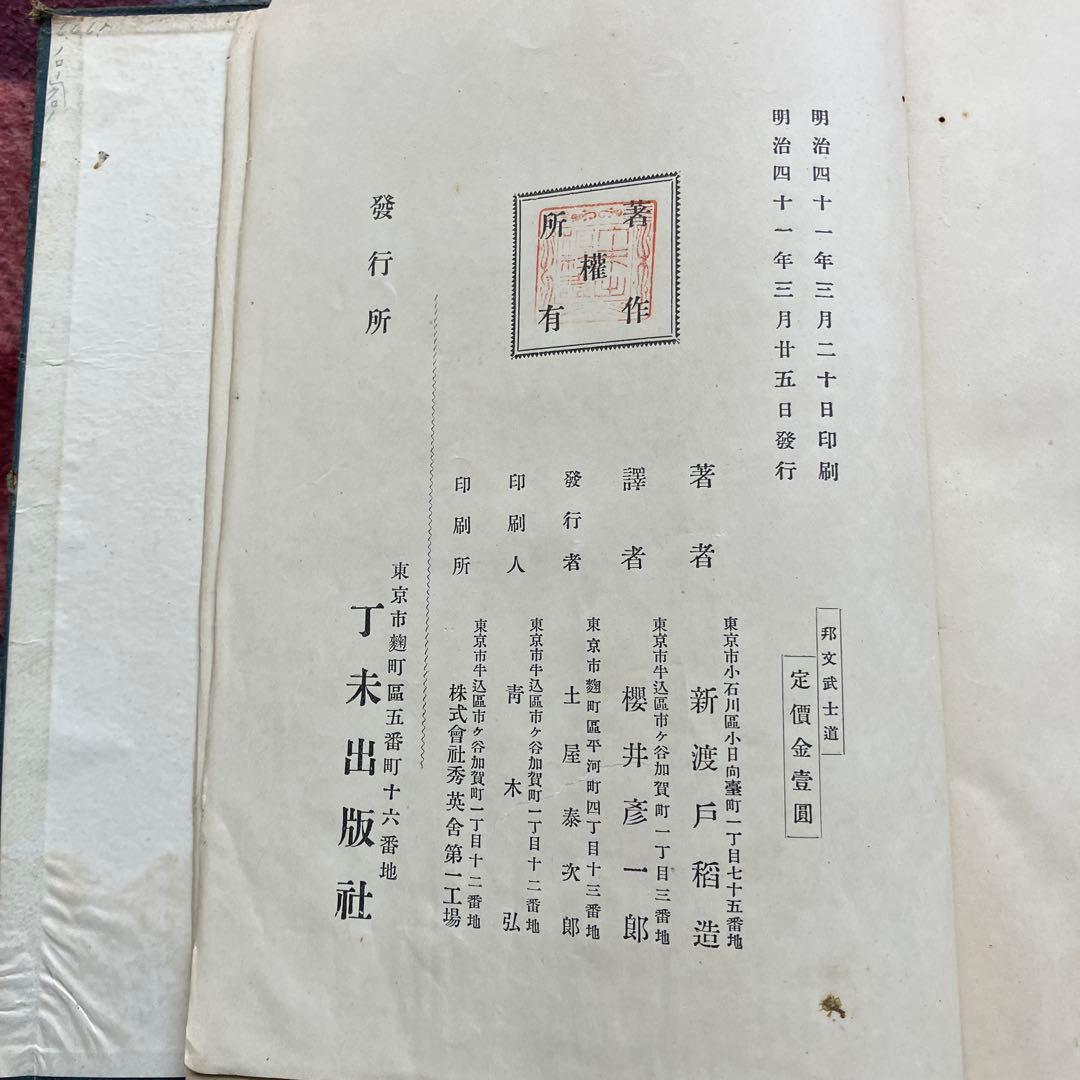 明治四十一年三月二十日印刷
明治四十一年三月廿五日發行
邦文武士道
定價金壹圓
著作權所有
著者
東京市小石川區小日向臺町一丁目七十五番地
新渡戸稻造
譯者
東京市牛込區市ケ谷加賀町一丁目三番地
櫻井彥一郎
發行者
東京市麴町區平河町四丁目十三番地
土屋泰次郎
印刷人
東京市牛込區市ケ谷加賀町一丁目十二番地
靑木弘
印刷所
東京市牛込區市ケ谷加賀町一丁目十二番地
株式會社秀英舍第一工場
發行所
東京市麴町區五番町十六番地
丁未出版社